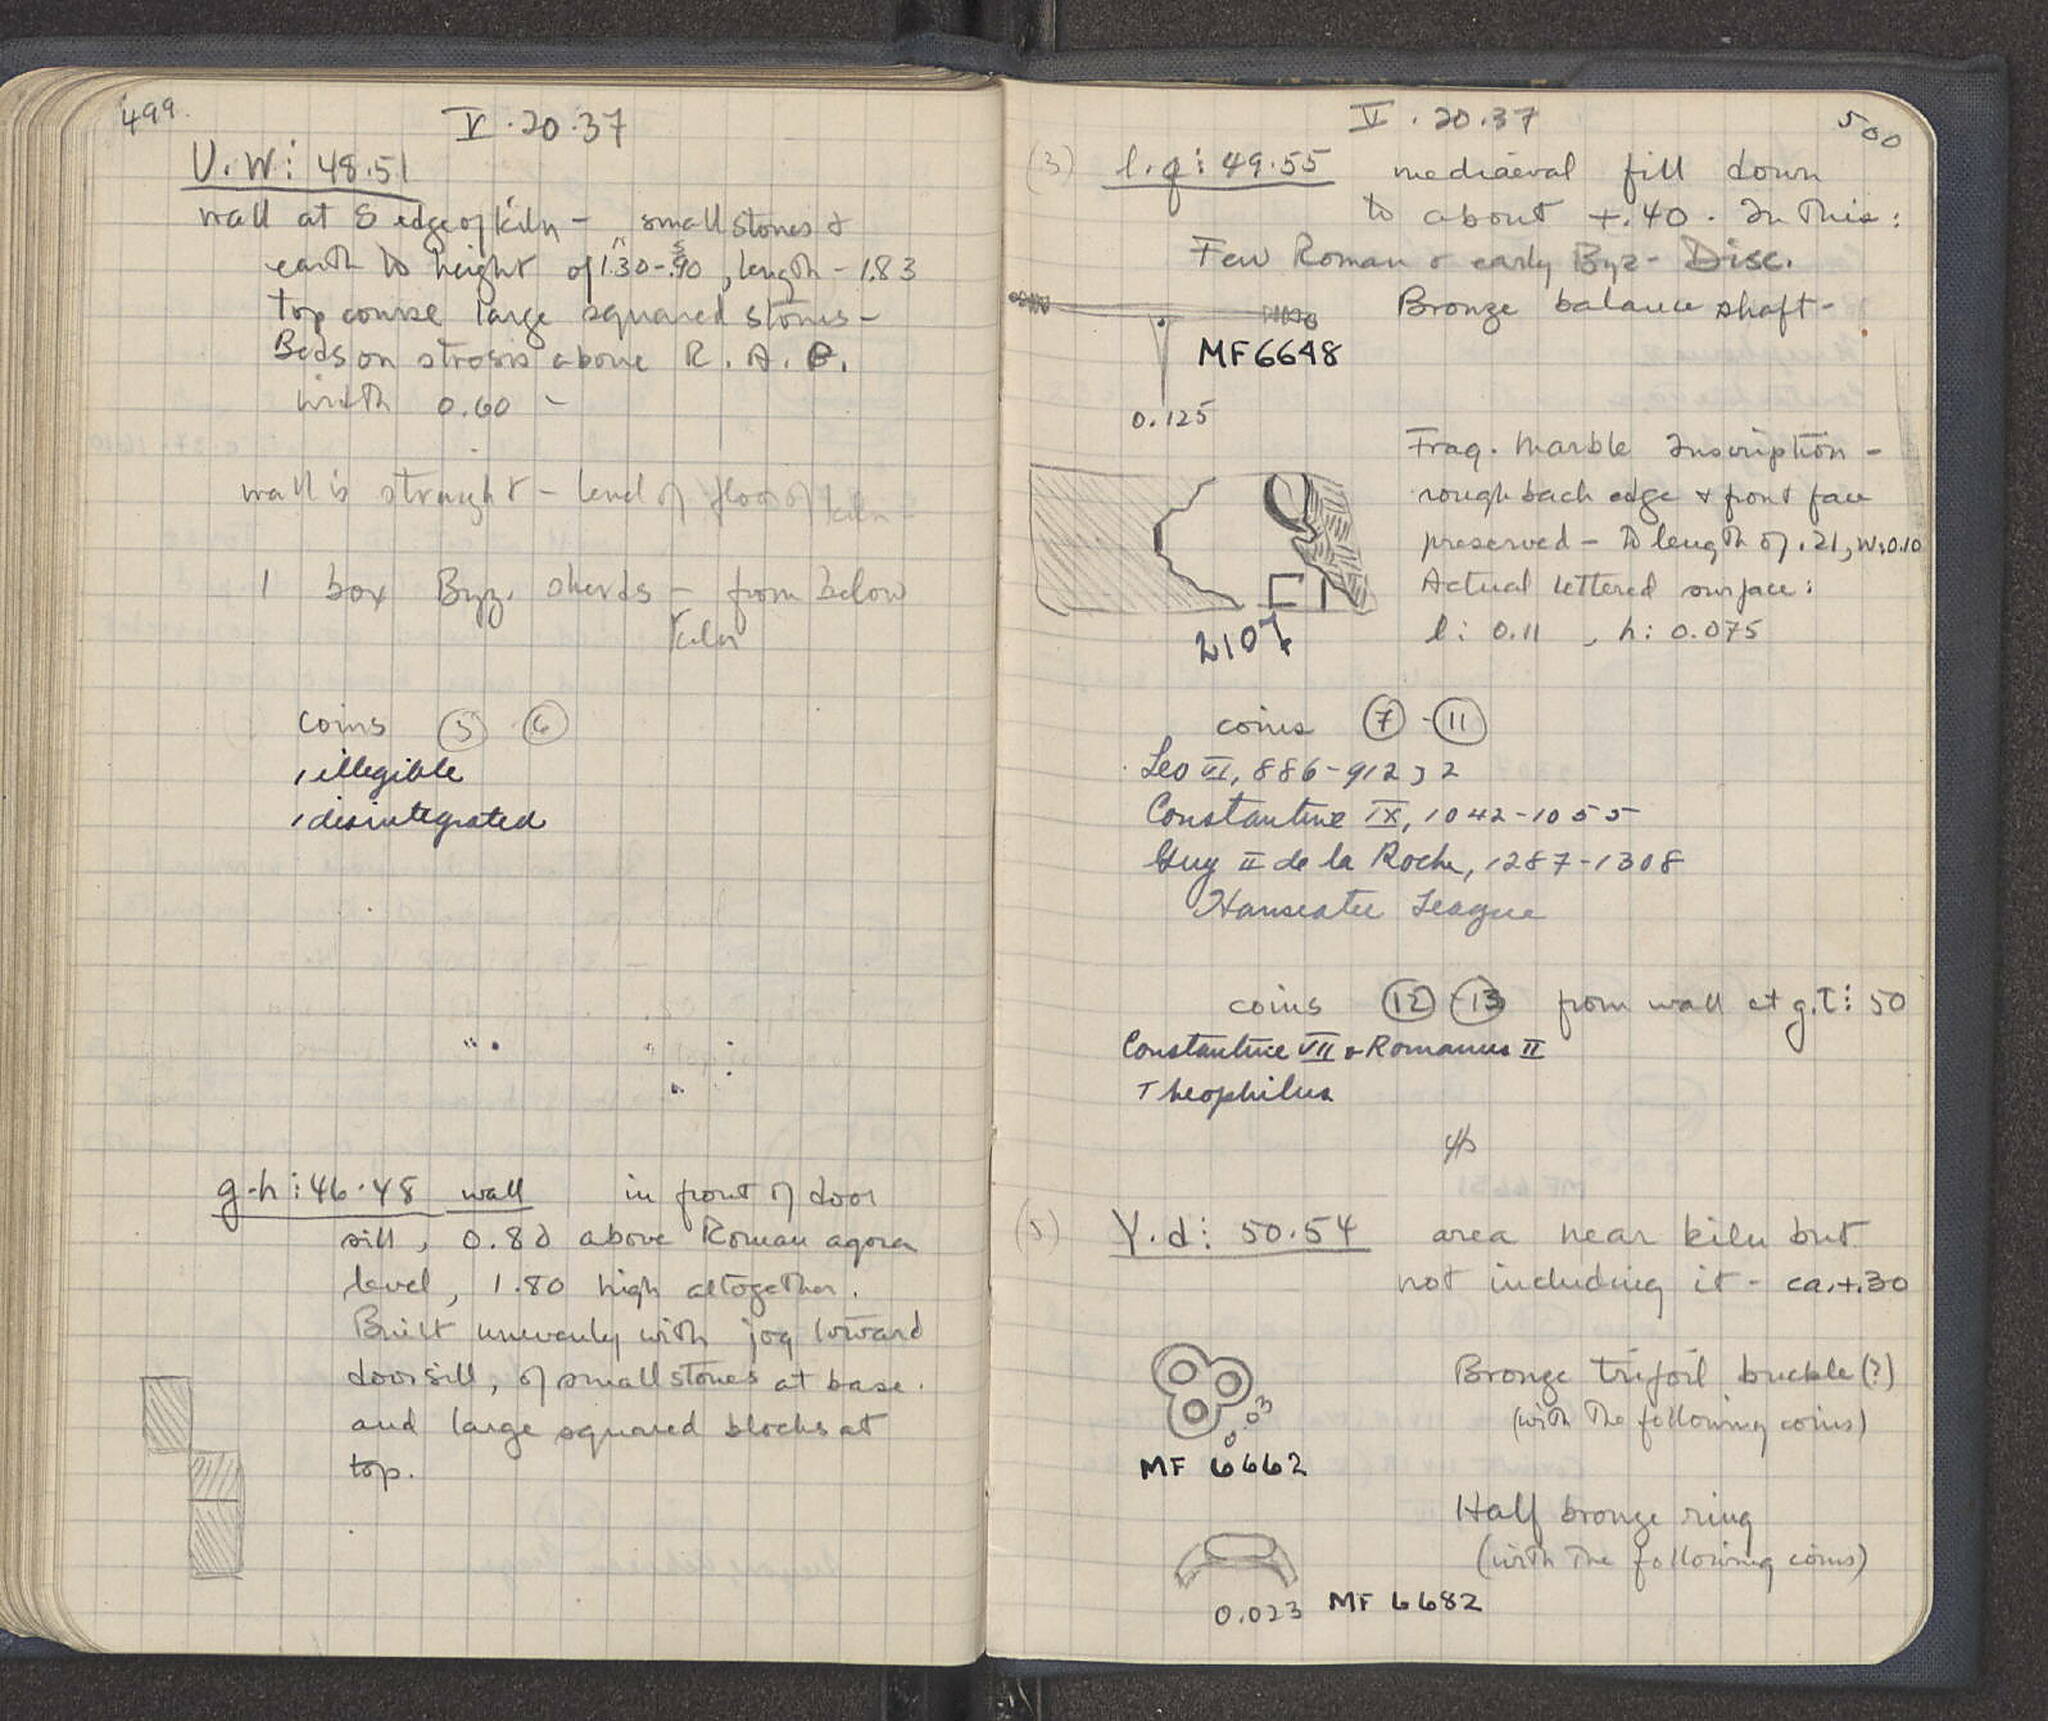 499.
V.20.37
U.W: 48.51
wall at S edge of kiln - small stones &
earth to height of 1.30-.90, length - 1.83
5
top course large squared stones -
Beds on strosis above R. A.
width 0.60 -
wall is straight - level of floor of kiln -
1 box Byz. sherds - from below
kiln
coins 5 6
1 illegible
1 disintegrated
g-h: 46.48 wall in front of door
sill, 0.80 above Roman agora
level, 1.80 high altogether.
Built unevenly with jog toward
doorsill, of small stones at base.
and large squared blocks at
top.
V.20.37
500
(3) l.q: 49.55 mediaeval fill down
to about +.40. In this:
Few Roman & early Byz- Disc.
Bronze balance shaft -
MF6648
0.125
Frag. Marble Inscription -
rough back edge & front face
preserved - to length of .21, W:0.10
Actual lettered surface:
l: 0.11, h: 0.075
2107
coins 7 - 11
Leo VI, 886-912, 2
Constantine IX, 1042-1055
Guy II de la Roche, 1287-1308
Hanseatic League
coins 12 - 13 from wall at g.t: 50
Constantine VII & Romanus II
Theophilus
Y.d: 50.54 area near kiln but
not including it - ca.+.30
Bronze trifoil buckle (?)
(with the following coins)
0.03
MF 6662
Half bronze ring
(with the following coins)
0.023 MF 6682